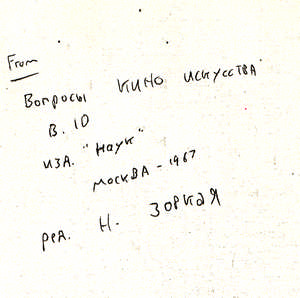 From
Вопросы кино искусства
В. 10
изд. "Наук"
москва - 1967
ред. Н. Зоркая